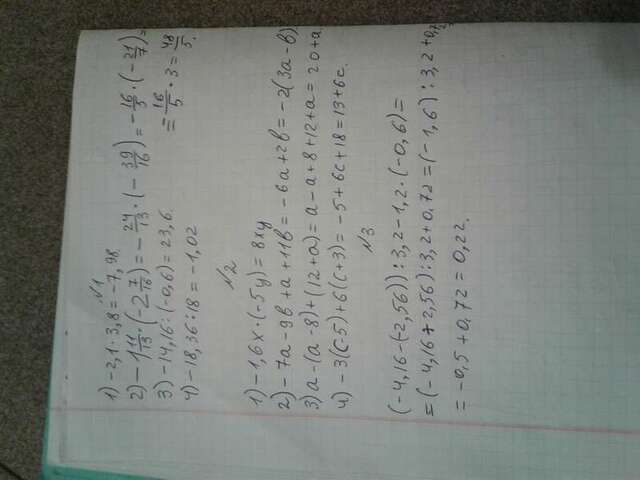 №1
1) -2,1 · 3,8 = -7,98.
2) -1 11/13 · (-2 7/16) = -24/13 · (-39/16) = -16/5 · (-21/7) =
3) -14,16 : (-0,6) = 23,6. = 16/5 · 3 = 48/5.
4) -18,36 : 18 = -1,02
№2
1) -1,6x · (-5y) = 8xy
2) -7a - 9b + a + 11b = -6a + 2b = -2(3a - b).
3) a - (a - 8) + (12 + a) = a - a + 8 + 12 + a = 20 + a.
4) -3(c - 5) + 6(c + 3) = -5 + 6c + 18 = 13 + 6c.
№3
(-4,16 - (-2,56)) : 3,2 - 1,2 · (-0,6) =
= (-4,16 + 2,56) : 3,2 + 0,72 = (-1,6) : 3,2 + 0,72
= -0,5 + 0,72 = 0,22.